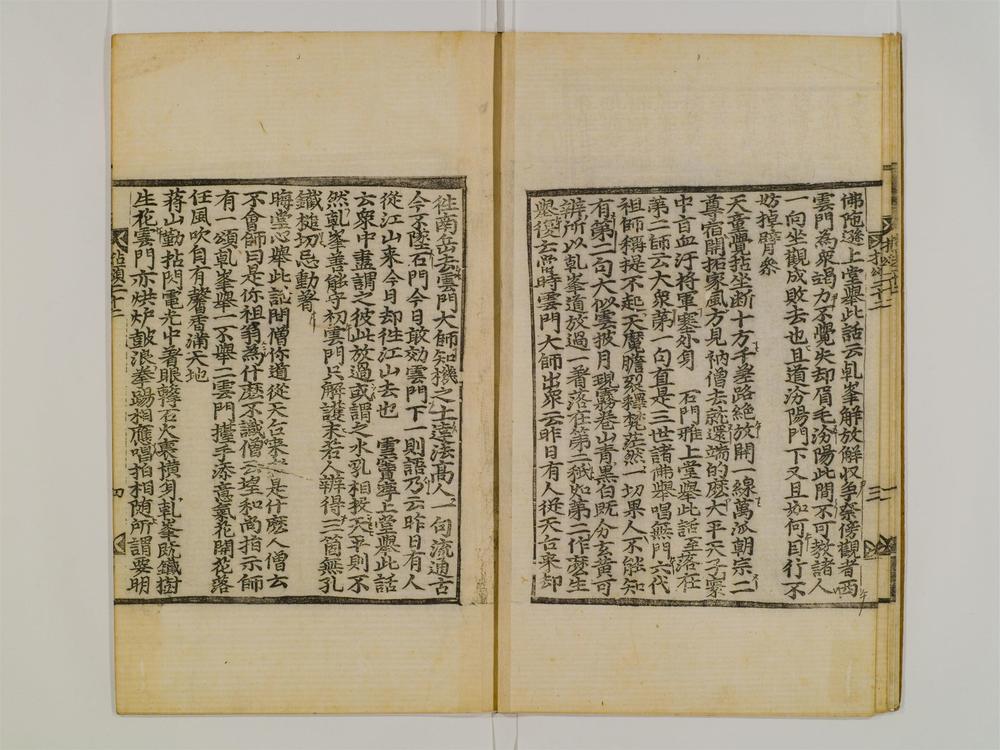 佛陁遜上堂擧此話云乹峯解放解収争奈傍觀者西
雲門為衆竭力不覺失却眉毛汾陽此間不可教諸人
一向坐觀成敗去也且道汾陽門下又且如何自行不
妨掉臂叅
天童覺拈坐断十方千差路絶放開一線萬泒朝宗二
尊宿開拓家風方見衲僧去就還端的麽大平天子寰
中旨血汗將軍塞外勾 石門雅上堂擧此話至落在
第二師云大衆第一句直是三世諸佛擧唱無門六代
祖師稱提不起天魔膽裂釋梵茫然一切果人不能知
有第二句大似雲披月現霧卷山青黑白既分玄黄可
辨所以乹峯道放過一著落在第二秖如第二作麽生
擧復云當時雲門大師出衆云昨日有人從天台来却
徃南岳去雲門大師知機之士達法高人一句流通古
今不墜石門今日敢効雲門下一則語乃云昨日有人
從江山来今日却徃江山去也 雲盖寧上堂擧此話
云衆中盡謂之彼此放過或謂之水乳相投天平則不
然乹峯善能守初雲門只解護末若人辨得三箇無孔
鐵槌切忌動著
晦堂心擧此話問僧你道從天台来者是什麽人僧云
不會師曰是你祖翁為什麽不識僧云望和尚指示師
有一頌乹峯擧一不擧二雲門攜手添意氣花開花落
任風吹自有馨香滿天地
蒋山勤拈閃電光中著眼轉石火裏横身乹峯既鐵樹
生花雲門亦烘炉皷浪拳踢相應唱拍相随所謂要明
拈頌二十二
四